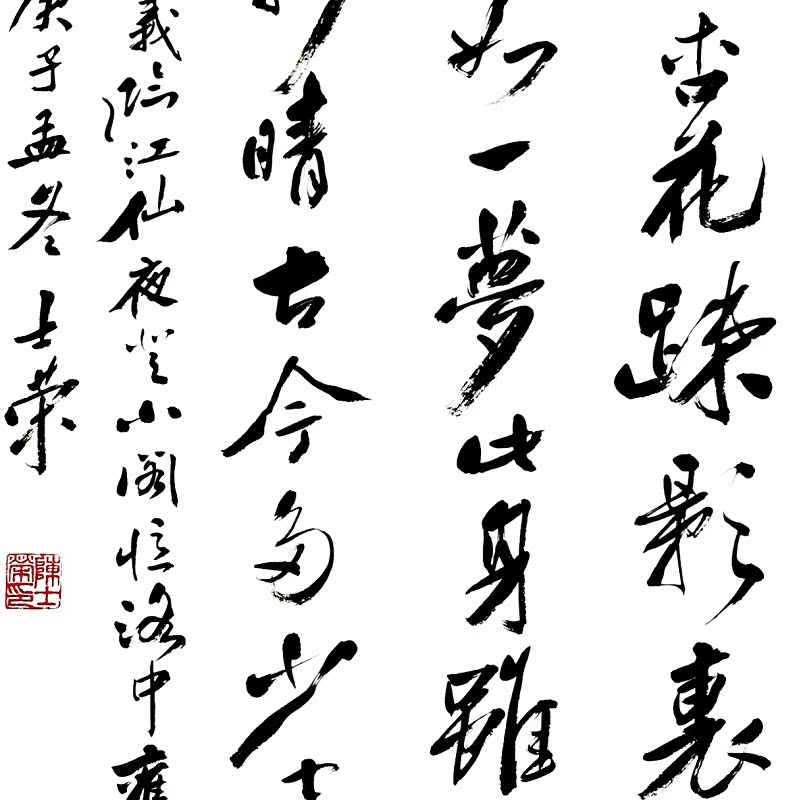 杏花踈影裏
如一夢此身雖
晴古今多少
義臨江仙夜登小閣憶洛中舊
庚子孟冬士荣
陳士榮印